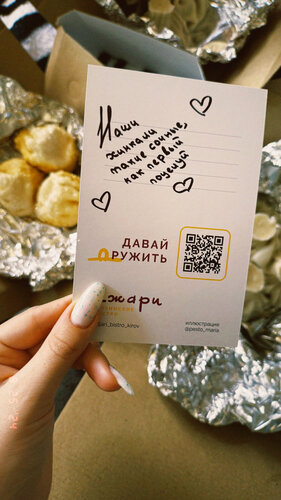 Наши
хинкали
такие сочные,
как первый
поцелуй
ДАВАЙ
ДРУЖИТЬ
жари
иллюстрация
@pesto_maria